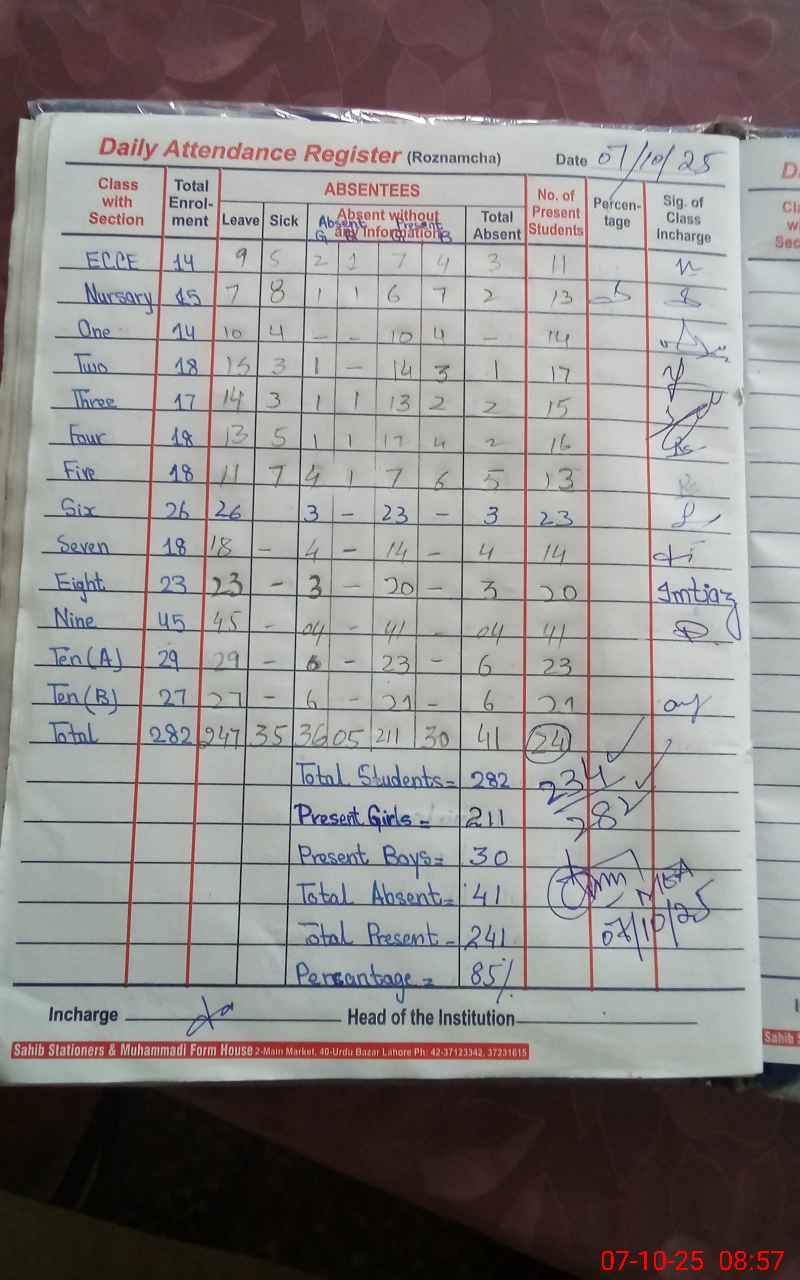 Daily Attendance Register (Roznamcha) Date 07/10/25
Class with Section Total Enrol-ment ABSENTEES No. of Present Students Percen-tage Sig. of Class Incharge
Leave Sick Absent without any Information Total Absent
Absent Present
G B G B
ECCE 14 9 5 2 1 7 4 3 11
Nursary 15 7 8 1 1 6 7 2 13
One 14 10 4 - - 10 4 - 14
Two 18 15 3 1 - 14 3 1 17
Three 17 14 3 1 1 13 2 2 15
Four 18 13 5 1 1 12 4 2 16
Five 18 11 7 4 1 7 6 5 13
Six 26 26 3 - 23 - 3 23
Seven 18 18 - 4 - 14 - 4 14
Eight 23 23 - 3 - 20 - 3 20 Imtiaz
Nine 45 45 - 04 - 41 - 04 41
Ten(A) 29 29 - 6 - 23 - 6 23
Ten(B) 27 27 - 6 - 21 - 6 21
Total 282 247 35 36 05 211 30 41 24
Total Students = 282 234
Present Girls = 211 282
Present Boys = 30
Total Absent = 41 MEA
Total Present - 241 07/10/25
Persantage = 85%
Incharge Head of the Institution
Sahib Stationers & Muhammadi Form House 2-Main Market, 40-Urdu Bazar Lahore Ph: 42-37123342, 37231615
07-10-25 08:57